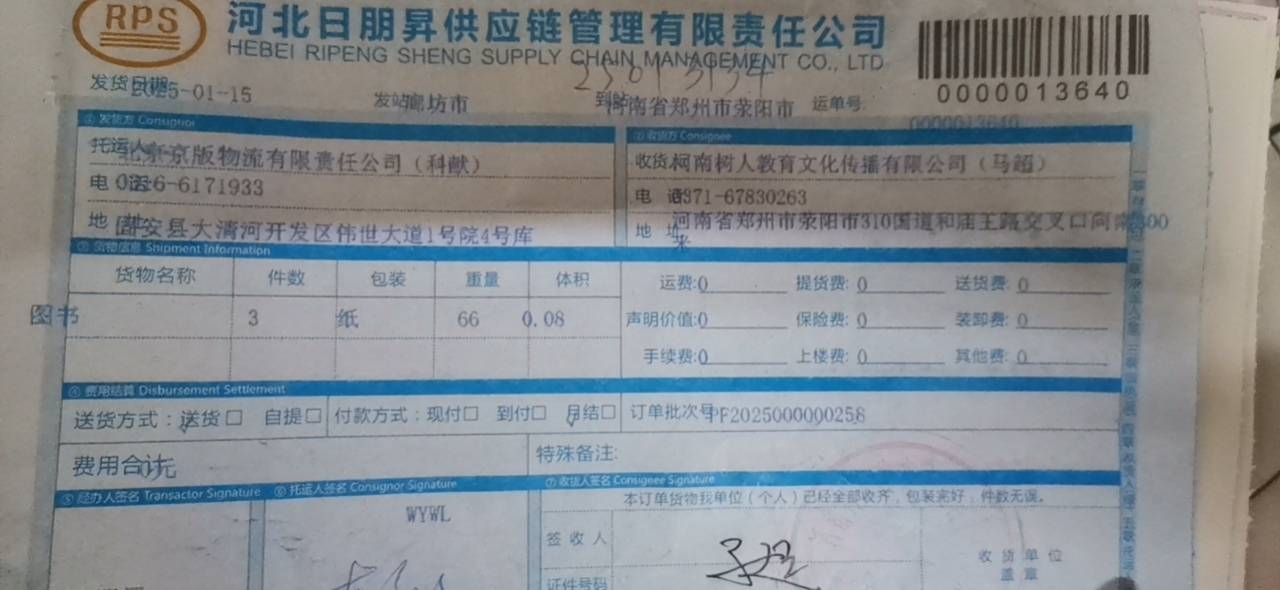 RPS
河北日朋昇供应链管理有限责任公司
HEBEI RIPENG SHENG SUPPLY CHAIN MANAGEMENT CO., LTD
0000013640
发货日期 2025-01-15 发站 廊坊市 到站 河南省郑州市荥阳市 运单号: 0000013640
① 发货方 Consignor ② 收货方 Consignee
托运人 北京京版物流有限责任公司（科献） 收货 河南树人教育文化传播有限公司（马超）
电 话 0316-6171933 电 话 0371-67830263
地 址 固安县大清河开发区伟世大道1号院4号库 地 址 河南省郑州市荥阳市310国道和庙王路交叉口向南
米
③ 货物信息 Shipment Information
货物名称 件数 包装 重量 体积 运费:0 提货费: 0 送货费: 0
图书 3 纸 66 0.08 声明价值:0 保险费: 0 装卸费: 0
手续费:0 上楼费: 0 其他费: 0
④ 费用结算 Disbursement Settlement
送货方式: 送货□ 自提□ 付款方式: 现付□ 到付□ 月结□ 订单批次号 PF2025000000258
费用合计 0元 特殊备注:
⑤ 经办人签名 Transactor Signature ⑥ 托运人签名 Consignor Signature ⑦ 收货人签名 Consignee Signature
WYWL 本订单货物我单位（个人）已经全部收齐，包装完好，件数无误。
签 收 人 收 货 单 位
盖 章
证件号码